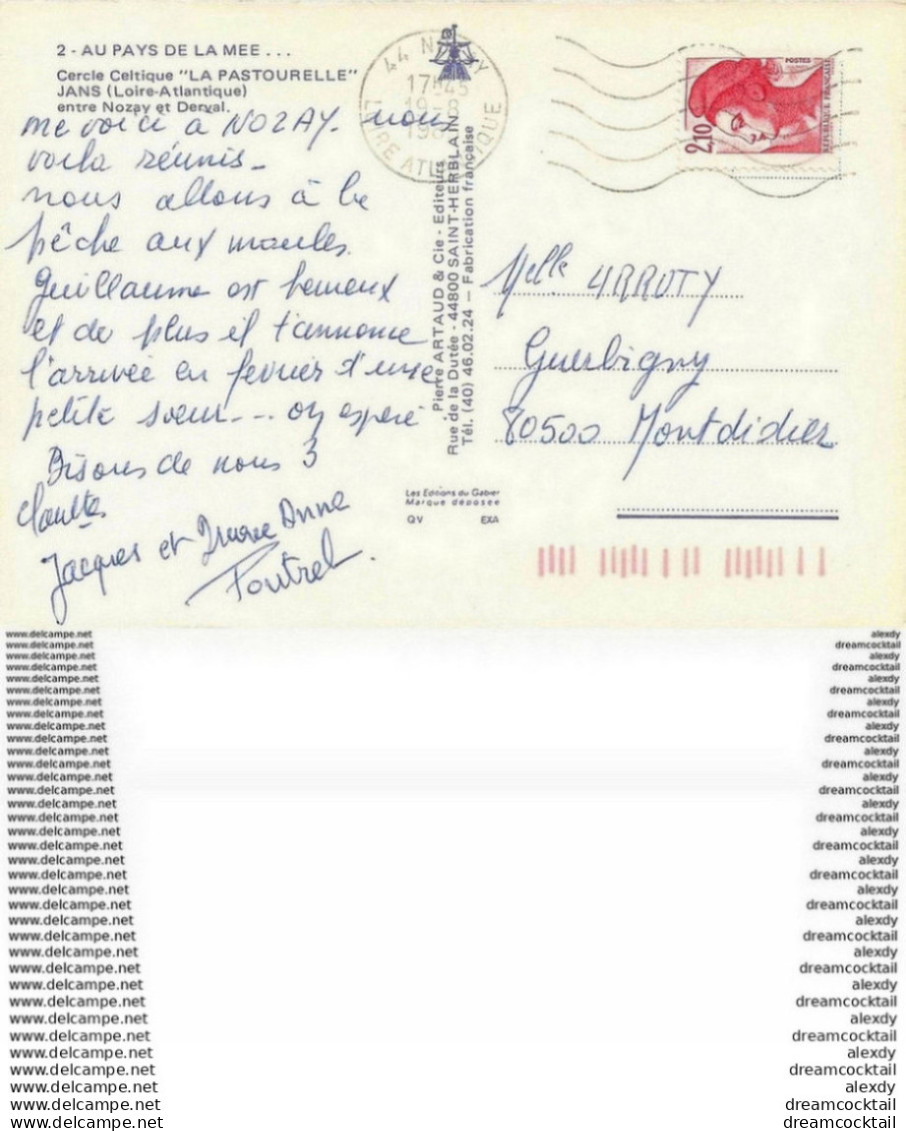 2 - AU PAYS DE LA MEE . . .
Cercle Celtique "LA PASTOURELLE"
JANS (Loire-Atlantique)
entre Nozay et Derval.
me voici à NOZAY. nous
voila réunis -
nous allons à la
pêche aux moules.
Guillaume est heureux
et de plus il t'annonce
l'arrivée en fevrier d'une
petite soeur --- on espère
Bisous de nous 3
Jacques et Marie Anne
Poutrel.
44 NOZAY
17-45
19-8
LOIRE ATLANTIQUE
Pierre ARTAUD & Cie - Editeurs
Rue de la Dutée - 44800 SAINT-HERBLAIN
Tél. (40) 46.02.24 — Fabrication française
Les Editions du Gabier
Marque déposée
QV EXA
POSTES
2,10
REPUBLIQUE FRANÇAISE
Melle ARRUTY
Guerbigny
80500 Montdidier
www.delcampe.net alexdy
www.delcampe.net dreamcocktail
www.delcampe.net alexdy
www.delcampe.net dreamcocktail
www.delcampe.net alexdy
www.delcampe.net dreamcocktail
www.delcampe.net alexdy
www.delcampe.net dreamcocktail
www.delcampe.net alexdy
www.delcampe.net dreamcocktail
www.delcampe.net alexdy
www.delcampe.net dreamcocktail
www.delcampe.net alexdy
www.delcampe.net dreamcocktail
www.delcampe.net alexdy
www.delcampe.net dreamcocktail
www.delcampe.net alexdy
www.delcampe.net dreamcocktail
www.delcampe.net alexdy
www.delcampe.net dreamcocktail
www.delcampe.net alexdy
www.delcampe.net dreamcocktail
www.delcampe.net alexdy
www.delcampe.net dreamcocktail
www.delcampe.net alexdy
www.delcampe.net dreamcocktail
www.delcampe.net alexdy
www.delcampe.net dreamcocktail
www.delcampe.net alexdy
www.delcampe.net dreamcocktail
www.delcampe.net alexdy
www.delcampe.net dreamcocktail
www.delcampe.net alexdy
www.delcampe.net dreamcocktail